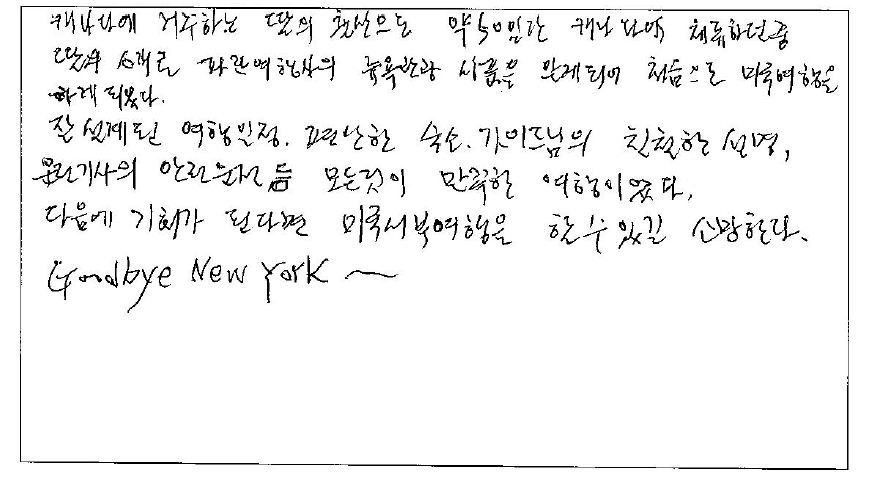 캐나다에 거주하는 딸의 출산으로 약 50일간 캐나다에 체류하던중
딸의 소개로 파란여행사의 뉴욕관광 상품을 알게되어 처음으로 미국여행을
하게 되었다.
잘 설계된 여행일정. 편안한 숙소. 가이드님의 친절한 설명,
운전기사의 안전운전 등 모든것이 만족한 여행이었다.
다음에 기회가 된다면 미국서부여행을 할 수 있길 소망한다.
Goodbye New York ~